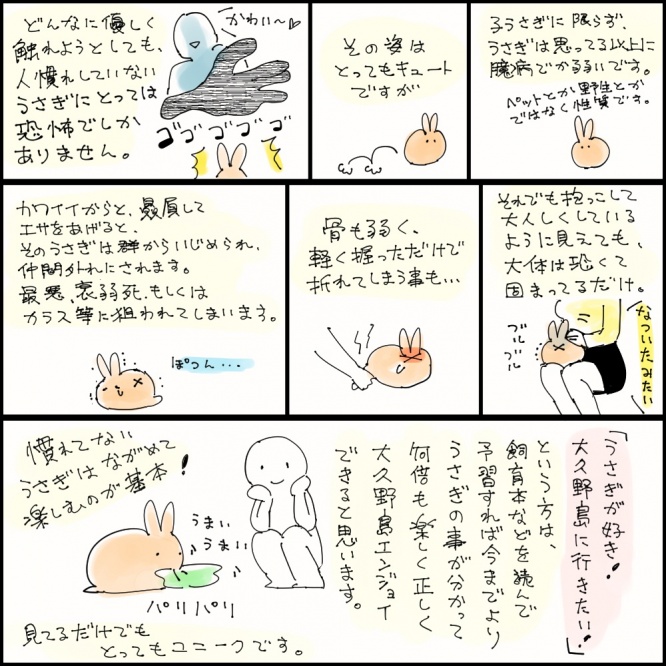 子うさぎに限らず、
うさぎは思ってる以上に
臆病でか弱いです。
ペットとか野生とか
ではなく性質です。
その姿は
とってもキュート
ですが
どんなに優しく
触れようとしても、
人慣れしていない
うさぎにとっては
恐怖でしか
ありません。
かわい〜♡
ゴゴゴゴゴゴ
それでも抱っこして
大人しくしている
ように見えても、
大体は恐くて
固まってるだけ。
なついたみたい
ブルブル
骨も弱く、
軽く掘っただけで
折れてしまう事も…
カワイイからと、贔屓して
エサをあげると、
そのうさぎは群からいじめられ、
仲間外れにされます。
最悪、衰弱死、もしくは
カラス等に狙われてしまいます。
ぽつん...
「うさぎが好き!
大久野島に行きたい!」
という方は、
飼育本などを読んで
予習すれば今までより
うさぎの事が分かって
何倍も楽しく正しく
大久野島エンジョイ
できると思います。
慣れてない
うさぎはながめて
楽しむのが基本!
うまい
うまい
パリパリ
見てるだけでも
とってもユニークです。